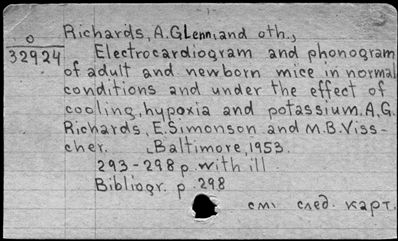 Richards, A. Glenn, and oth.,
О
32924
Electrocardiogram and phonogram
of adult and newborn mice in normal
conditions and under the effect of
cooling, hypoxia and potassium. A.G.
Richards, E. Simonson and M.B. Viss-
cher. Baltimore, 1953.
293-298 p. with ill.
Bibliogr. p. 298
см. след. карт.